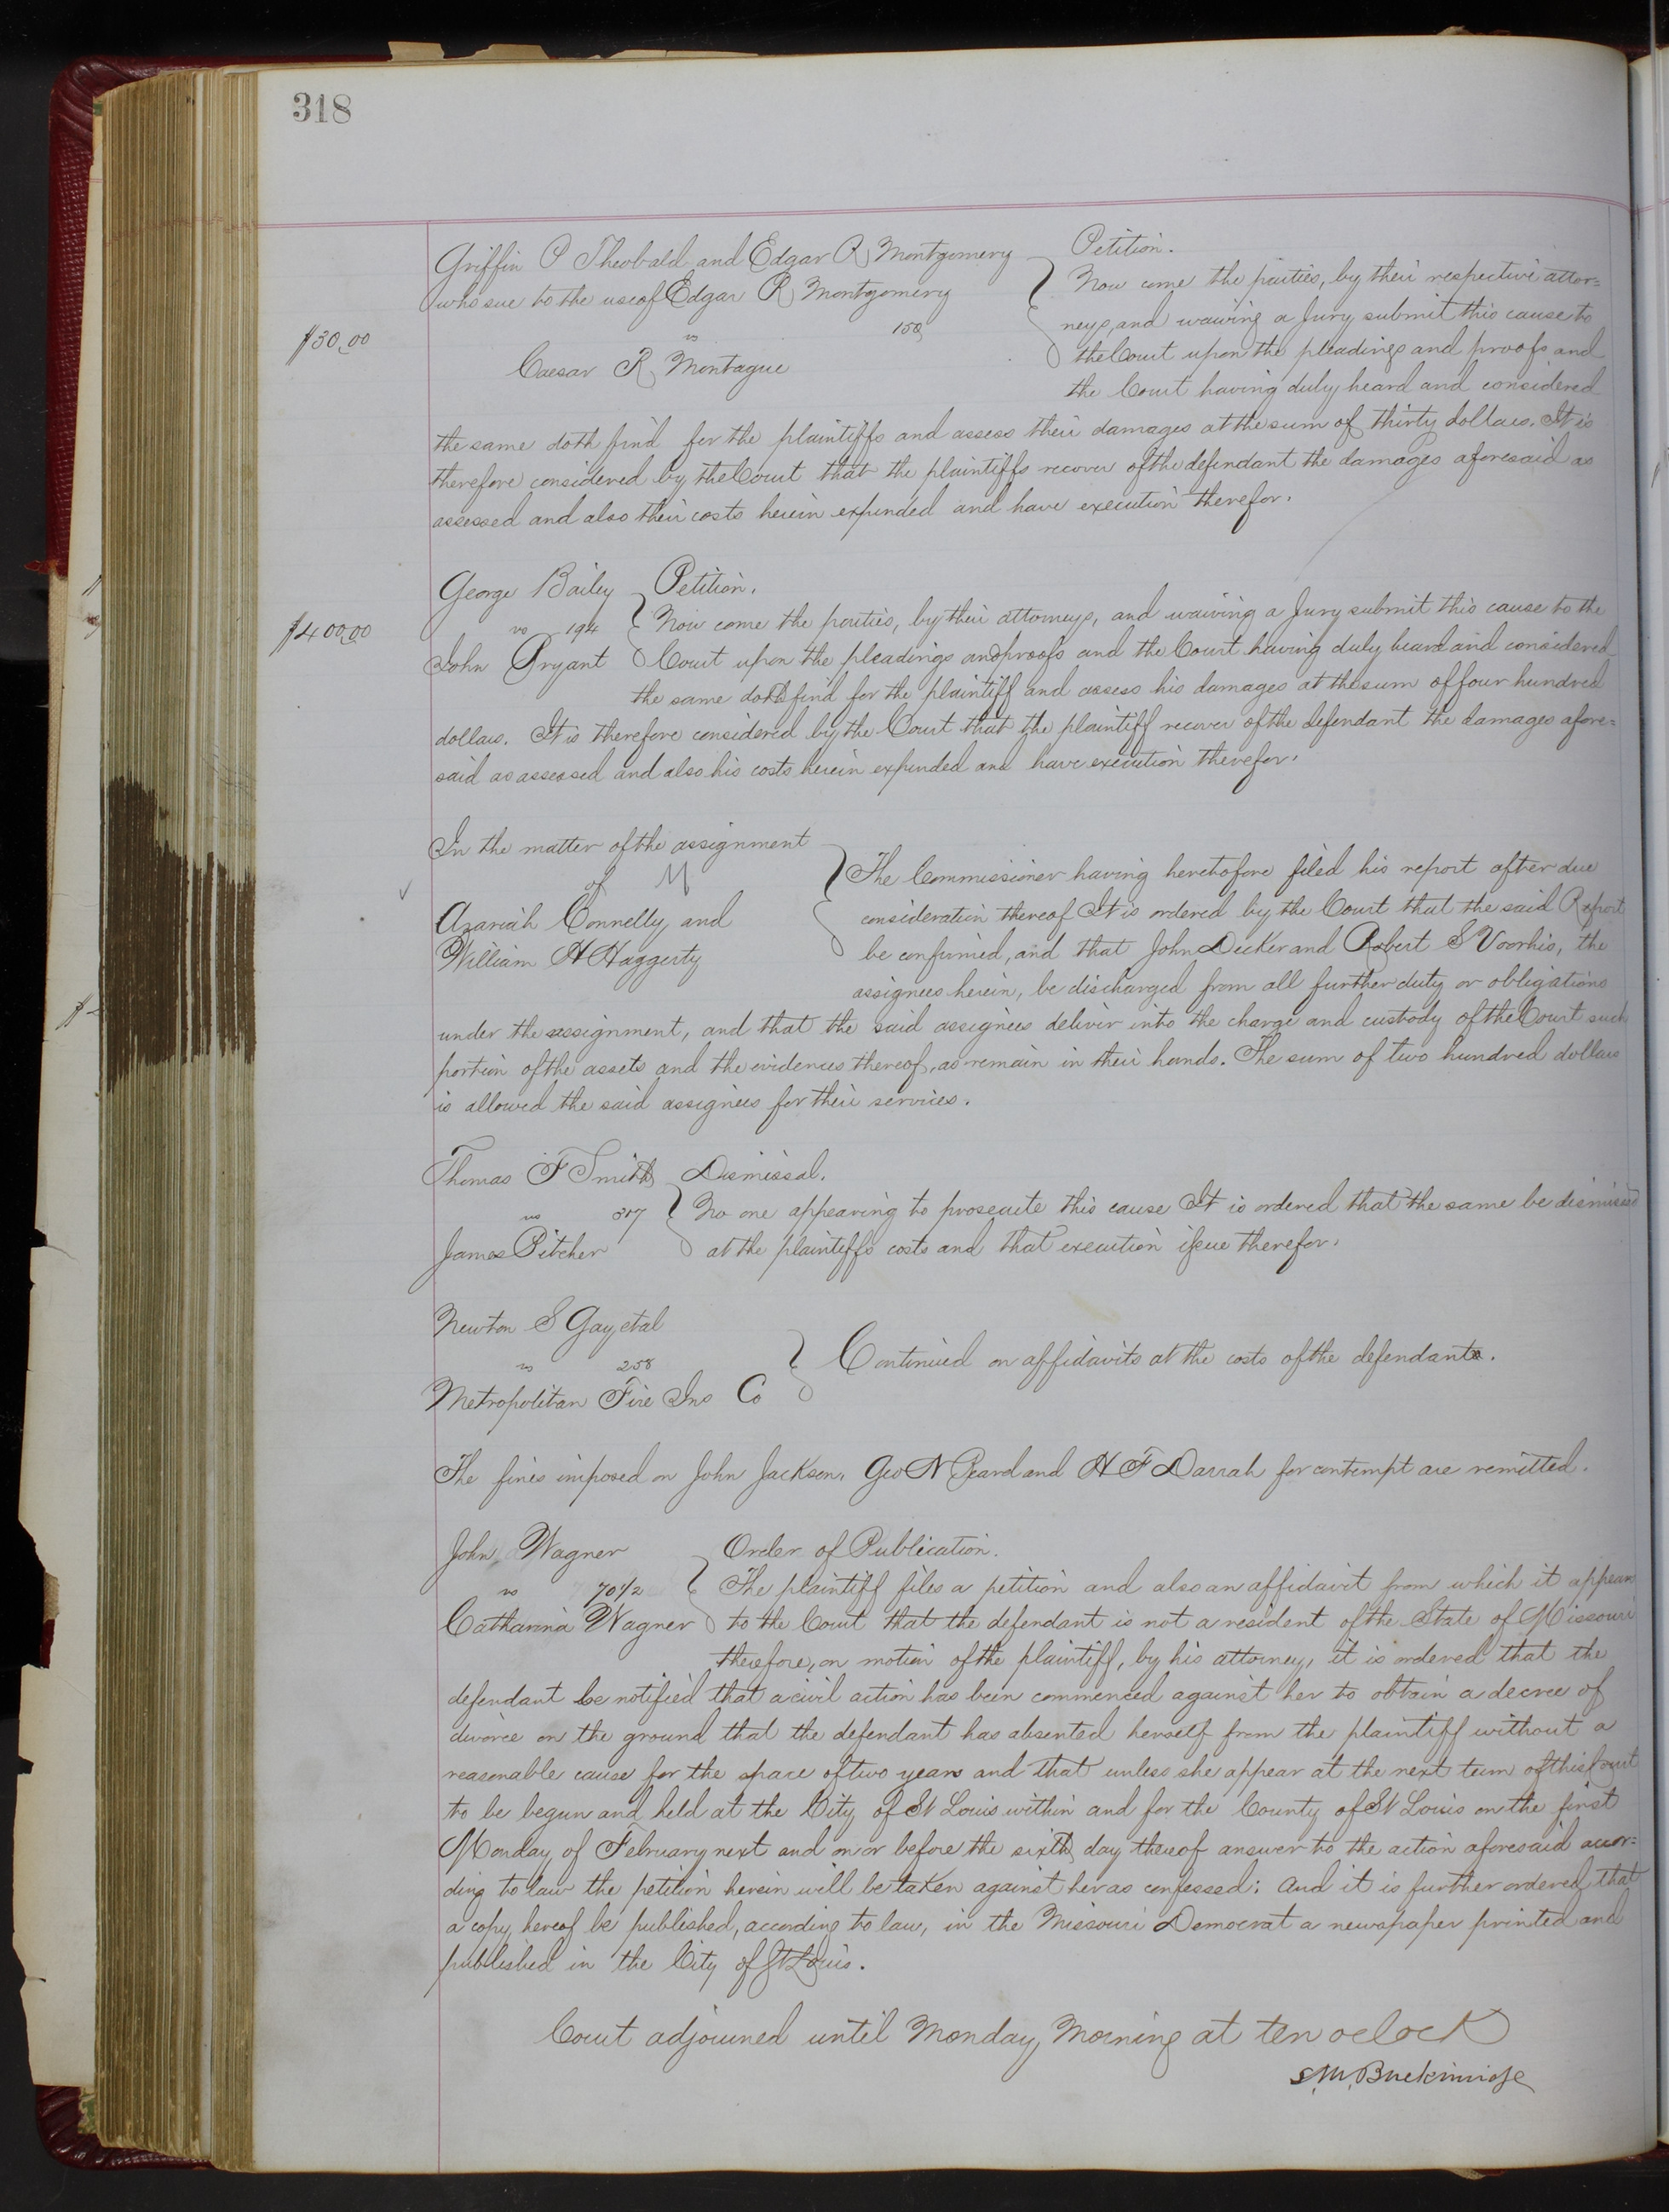 318
Griffin P Theobald and Edgar R Montgomery
who sue to the use of Edgar R Montgomery
vs 150
Caesar R Montague
$30.00
Petition.
Now come the parties, by their respective attor=
neys, and waiving a Jury submit this cause to
the Court upon the pleadings and proofs and
the Court having duly heard and considered
the same doth find for the plaintiffs and assess their damages at the sum of thirty dollars. It is
therefore considered by the Court that the plaintiffs recover of the defendant the damages aforesaid as
assessed and also their costs herein expended and have execution therefor.
George Bailey
vs 194
John Pryant
$400.00
Petition.
Now come the parties, by their attorneys, and waiving a Jury submit this cause to the
Court upon the pleadings and proofs and the Court having duly heard and considered
the same doth find for the plaintiff and assess his damages at the sum of four hundred
dollars. It is therefore considered by the Court that the plaintiff recover of the defendant the damages afore=
said as assessed and also his costs herein expended and have execution therefor.
In the matter of the assignment
of M
Azariah Connelly and
William H Haggerty
The Commissioner having heretofore filed his report after due
consideration thereof It is ordered by the Court that the said Report
be confirmed, and that John Decker and Robert S Voorhis, the
assignees herein, be discharged from all further duty or obligations
under the assignment, and that the said assignees deliver into the charge and custody of the Court such
portion of the assets and the evidences thereof, as remain in their hands. The sum of two hundred dollars
is allowed the said assignees for their services.
Thomas F Smith
vs 317
James Pitcher
Dismissal.
No one appearing to prosecute this cause It is ordered that the same be dismissed
at the plaintiffs costs and that execution issue therefor.
Newton S Gay et al
vs 258
Metropolitan Fire Ins Co
Continued on affidavits at the costs of the defendants.
The fines imposed on John Jackson, Geo N Beard and H F Darrah for contempt are remitted.
John Wagner
vs 70½
Catharina Wagner
Order of Publication.
The plaintiff files a petition and also an affidavit from which it appears
to the Court that the defendant is not a resident of the State of Missouri
therefore, on motion of the plaintiff, by his attorney, it is ordered that the
defendant be notified that a civil action has been commenced against her to obtain a decree of
divorce on the ground that the defendant has absented herself from the plaintiff without a
reasonable cause for the space of two years and that unless she appear at the next term of this Court
to be begun and held at the City of St Louis within and for the County of St Louis on the first
Monday of February next and on or before the sixth day thereof answer to the action aforesaid accor=
ding to law the petition herein will be taken against her as confessed; and it is further ordered that
a copy hereof be published, according to law, in the Missouri Democrat a newspaper printed and
published in the City of St Louis.
Court adjourned until Monday Morning at ten oclock
S. M. Breckinridge